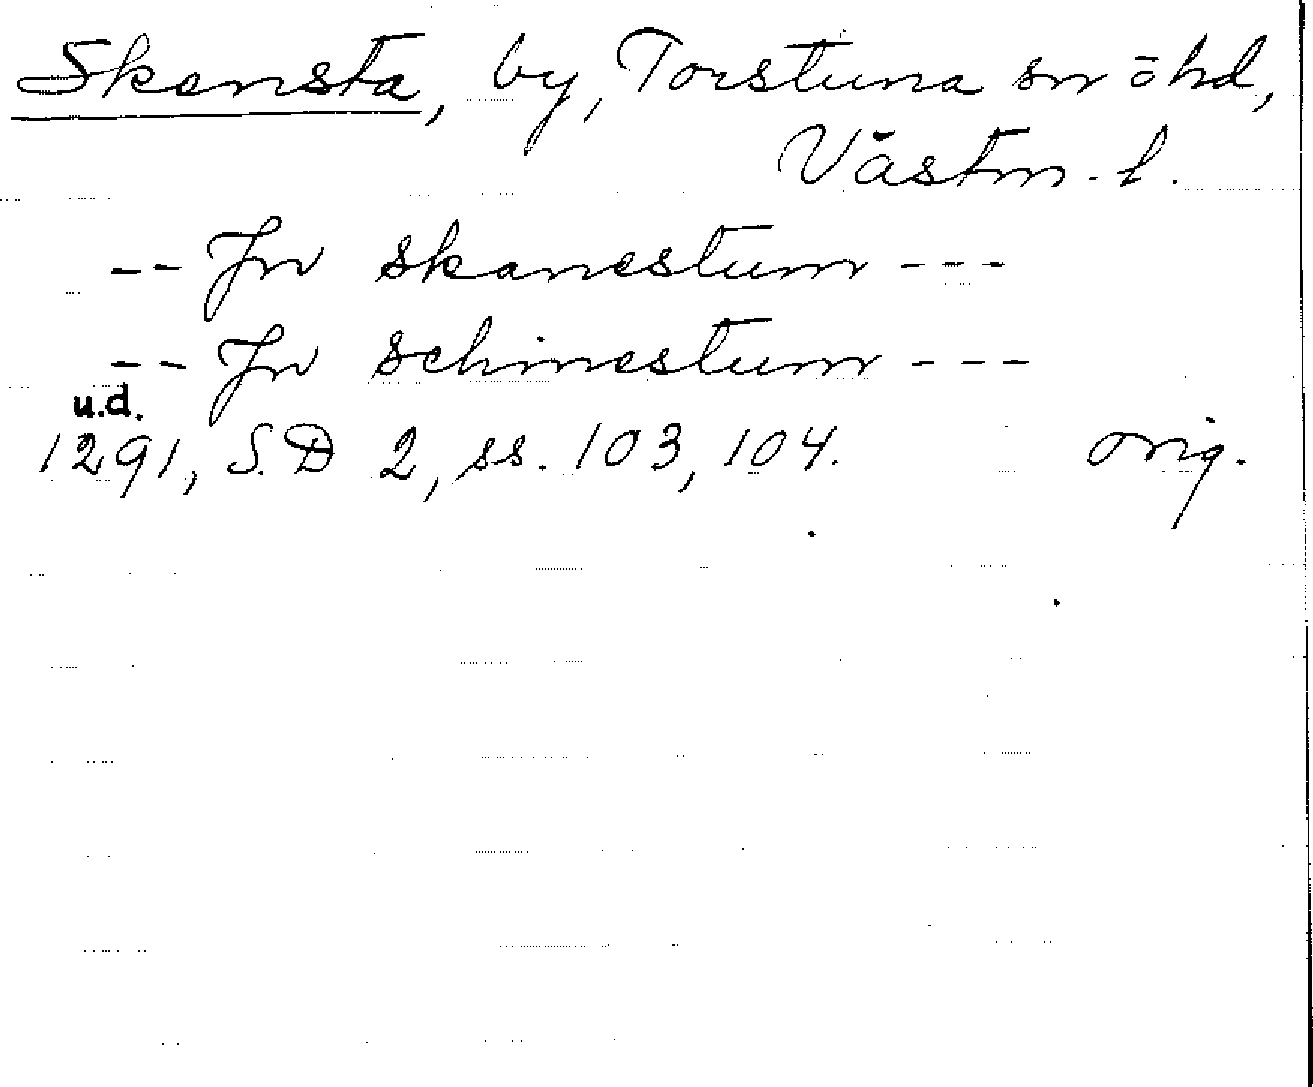 Skensta, by, Torstuna sn o hd,
Västm. l.
-- Jn skanestum ---
-- Jn schinestum ---
u.d.
1291, S.D 2, ss. 103, 104. orig.